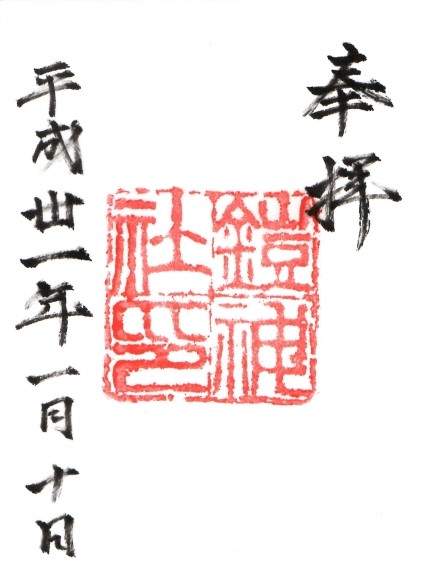 奉拝
鎧神
社印
平成丗一年一月十日